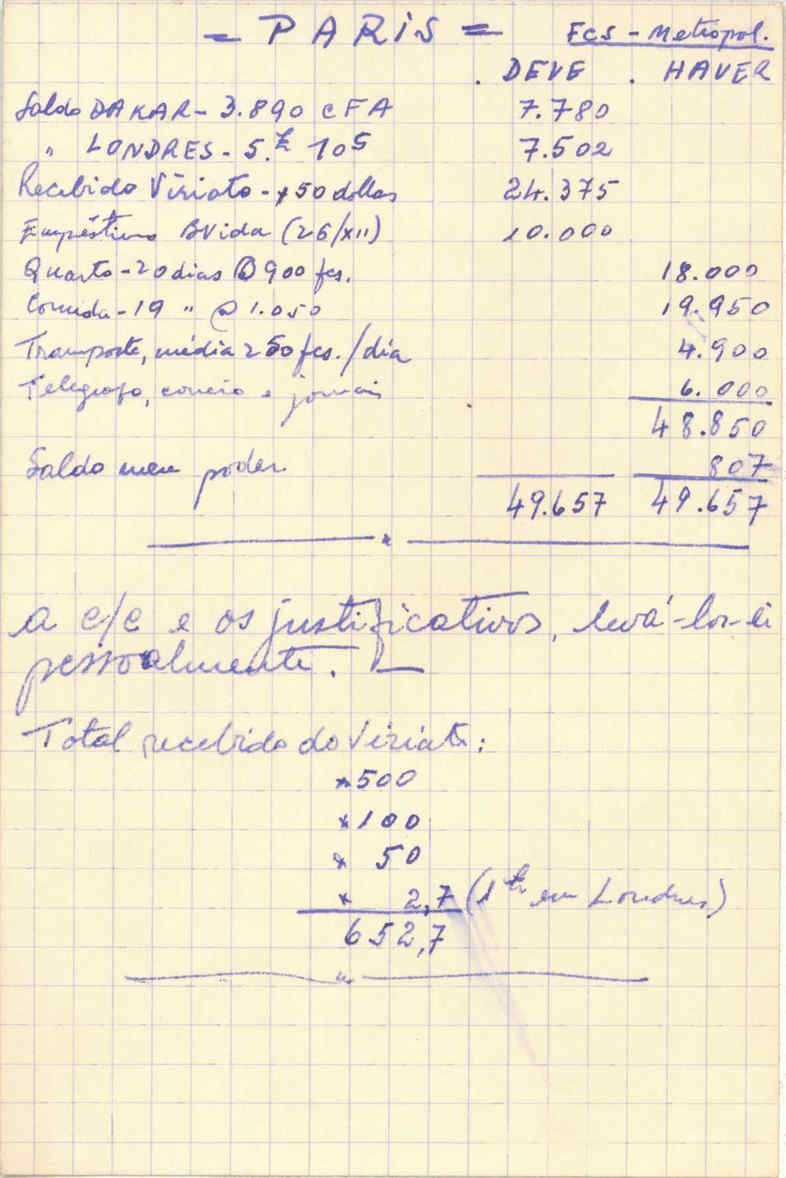 = PARIS = Fcs - Metropol.
. DEVE . HAVER
Saldo DAKAR - 3.890 CFA 7.780
" LONDRES - 5.£ 10s 7.502
Recebido Viriato - 50 dollas 24.375
Empréstimo BVida (26/XII) 10.000
Quarto - 20 dias @ 900 fcs. 18.000
Comida - 19 " @ 1.050 19.950
Transporte, média 250 fcs./dia 4.900
Telegrafo, correio e jornais 6.000
48.850
Saldo meu poder 807
49.657 49.657
A c/c e os justificativos, levá-los-ei
pessoalmente.
Total recebido do Viriato:
* 500
* 100
* 50
* 2,7 (1 £ em Londres)
652,7